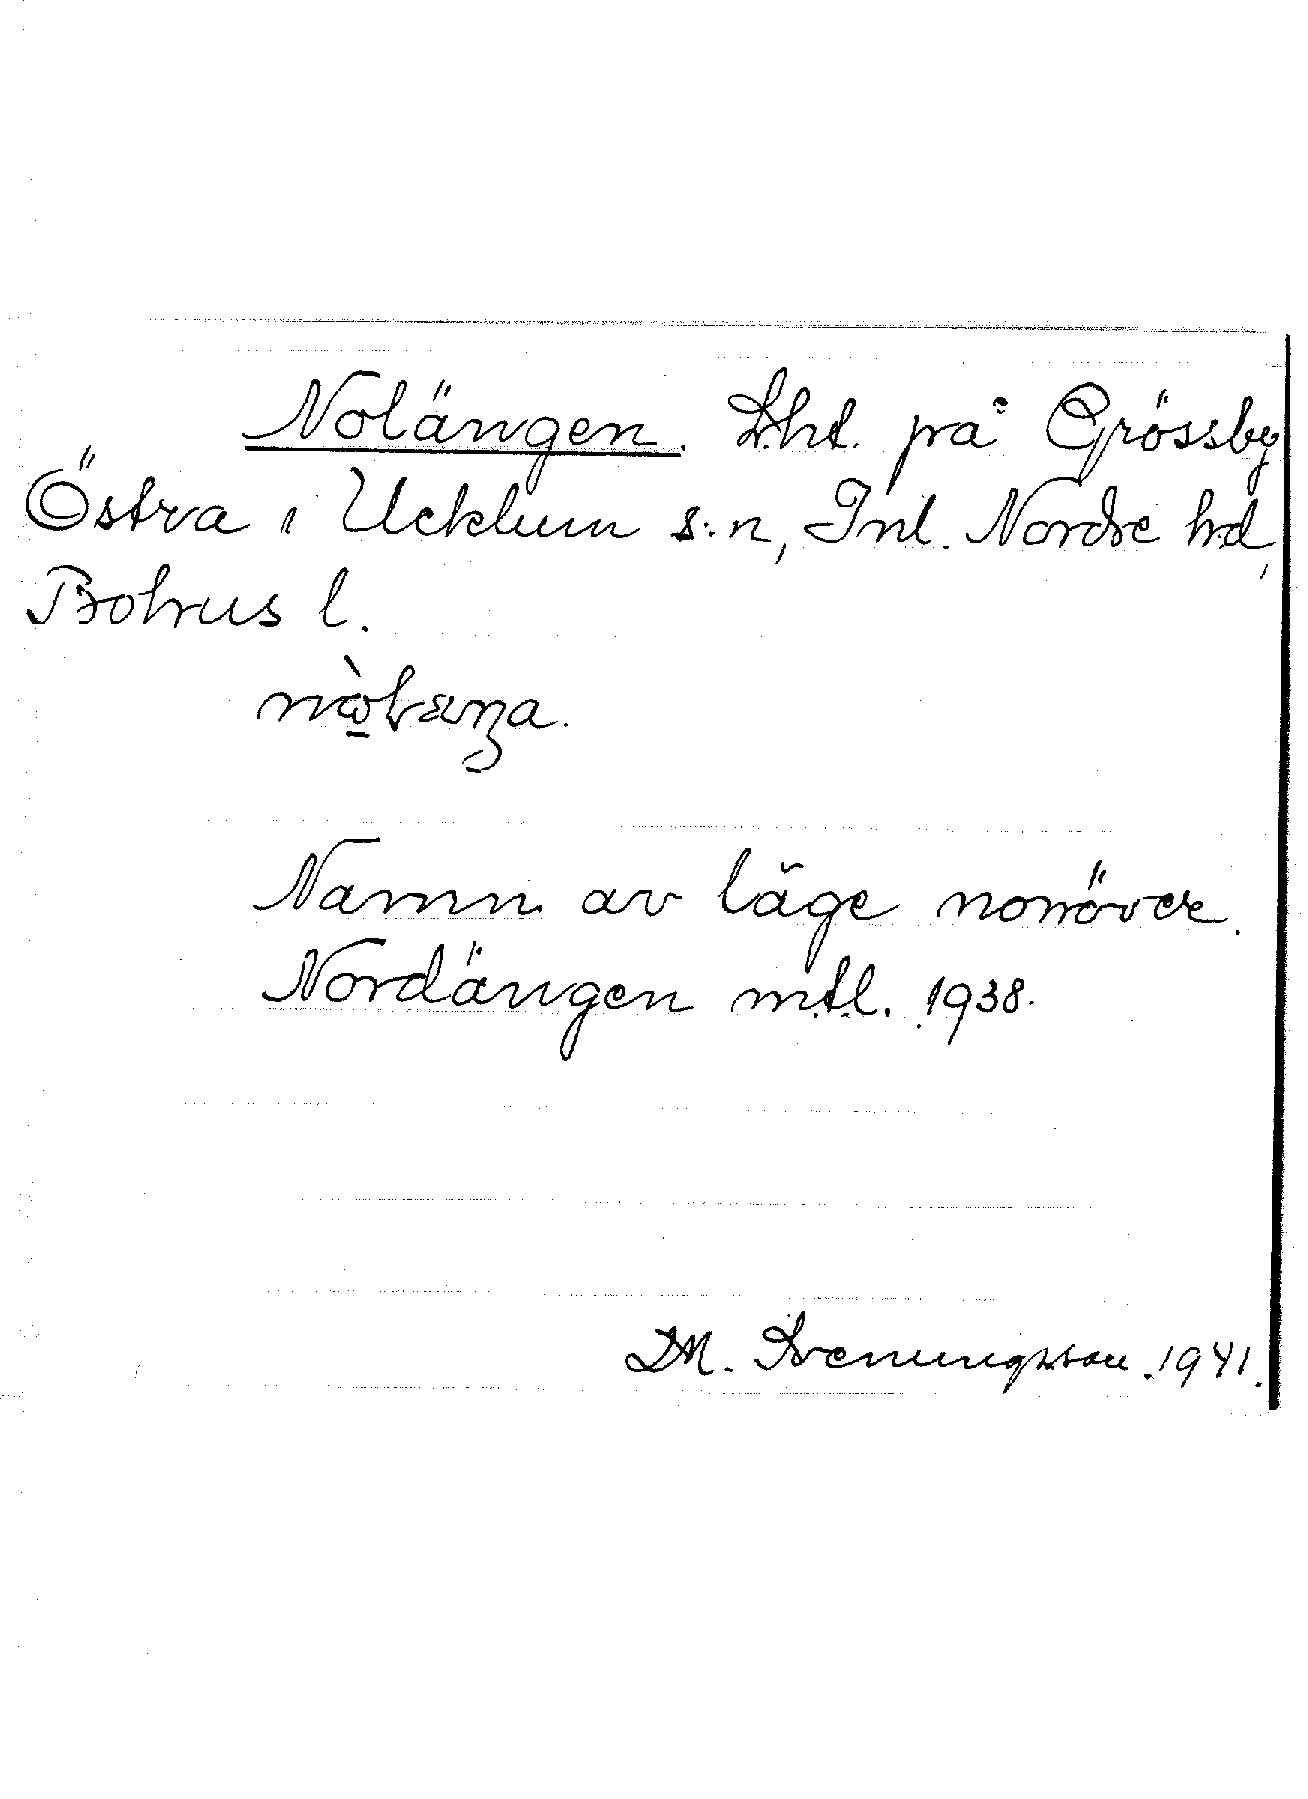 Nolängen. Lht. på Grössby
Östra i Ucklum s:n, Inl. Nordre hd,
Bohus l.
Namn av läge norröver.
Nordängen mtl. 1938.
M. Svenungsson 1941.